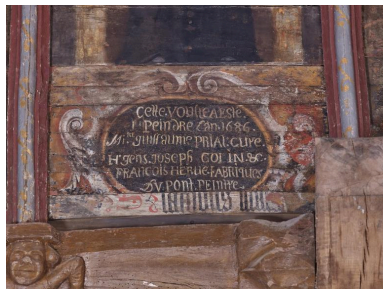 CETTE. VOUTE A ESTE.
Peindre Lan. 1686.
guillaume PRIAL. CURE.
H. gens. JOSEPH COI IN. &.
FRANCOIS HERVE. FABRIQUES
DU PONT. PEINTRE.